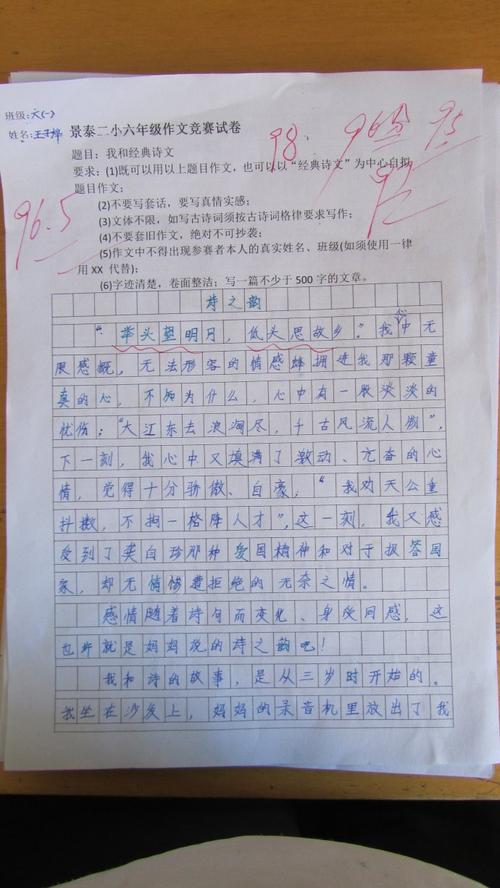 班级:六(一)
姓名:王
景泰二小六年级作文竞赛试卷
98
96分
95
92
96.5
题目:我和经典诗文
要求:(1)既可以用以上题目作文,也可以以“经典诗文”为中心自拟
题目作文;
(2)不要写套话,要写真情实感;
(3)文体不限,如写古诗词须按古诗词格律要求写作;
(4)不要套旧作文,绝对不可抄袭;
(5)作文中不得出现参赛者本人的真实姓名、班级(如须使用一律
用 XX 代替);
(6)字迹清楚,卷面整洁;写一篇不少于 500 字的文章。
诗之韵
“举头望明月,低头思故乡。”我心中无
限感慨,无法形容的情感蜂拥进我那颗童
真的心,不知为什么,心中有一股淡淡的
忧伤;“大江东去浪淘尽,千古风流人物”,
下一刻,我心中又填满了激动、亢奋的心
情,觉得十分骄傲、自豪,“我劝天公重
抖擞,不拘一格降人才”,这一刻,我又感
受到了龚自珍那种爱国精神和对于报答国
家,却无情惨遭拒绝的无奈之情。
感情随着诗句而变化、身受同感,这
也许就是妈妈说的诗之韵吧!
我和诗的故事,是从三岁时开始的。
我坐在沙发上,妈妈的录音机里放出了我